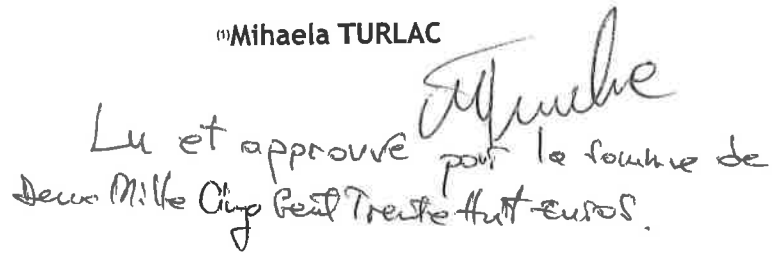 (1)Mihaela TURLAC
Lu et approuvé pour la somme de
Deux Mille Cinq Cent Trente Huit Euros.